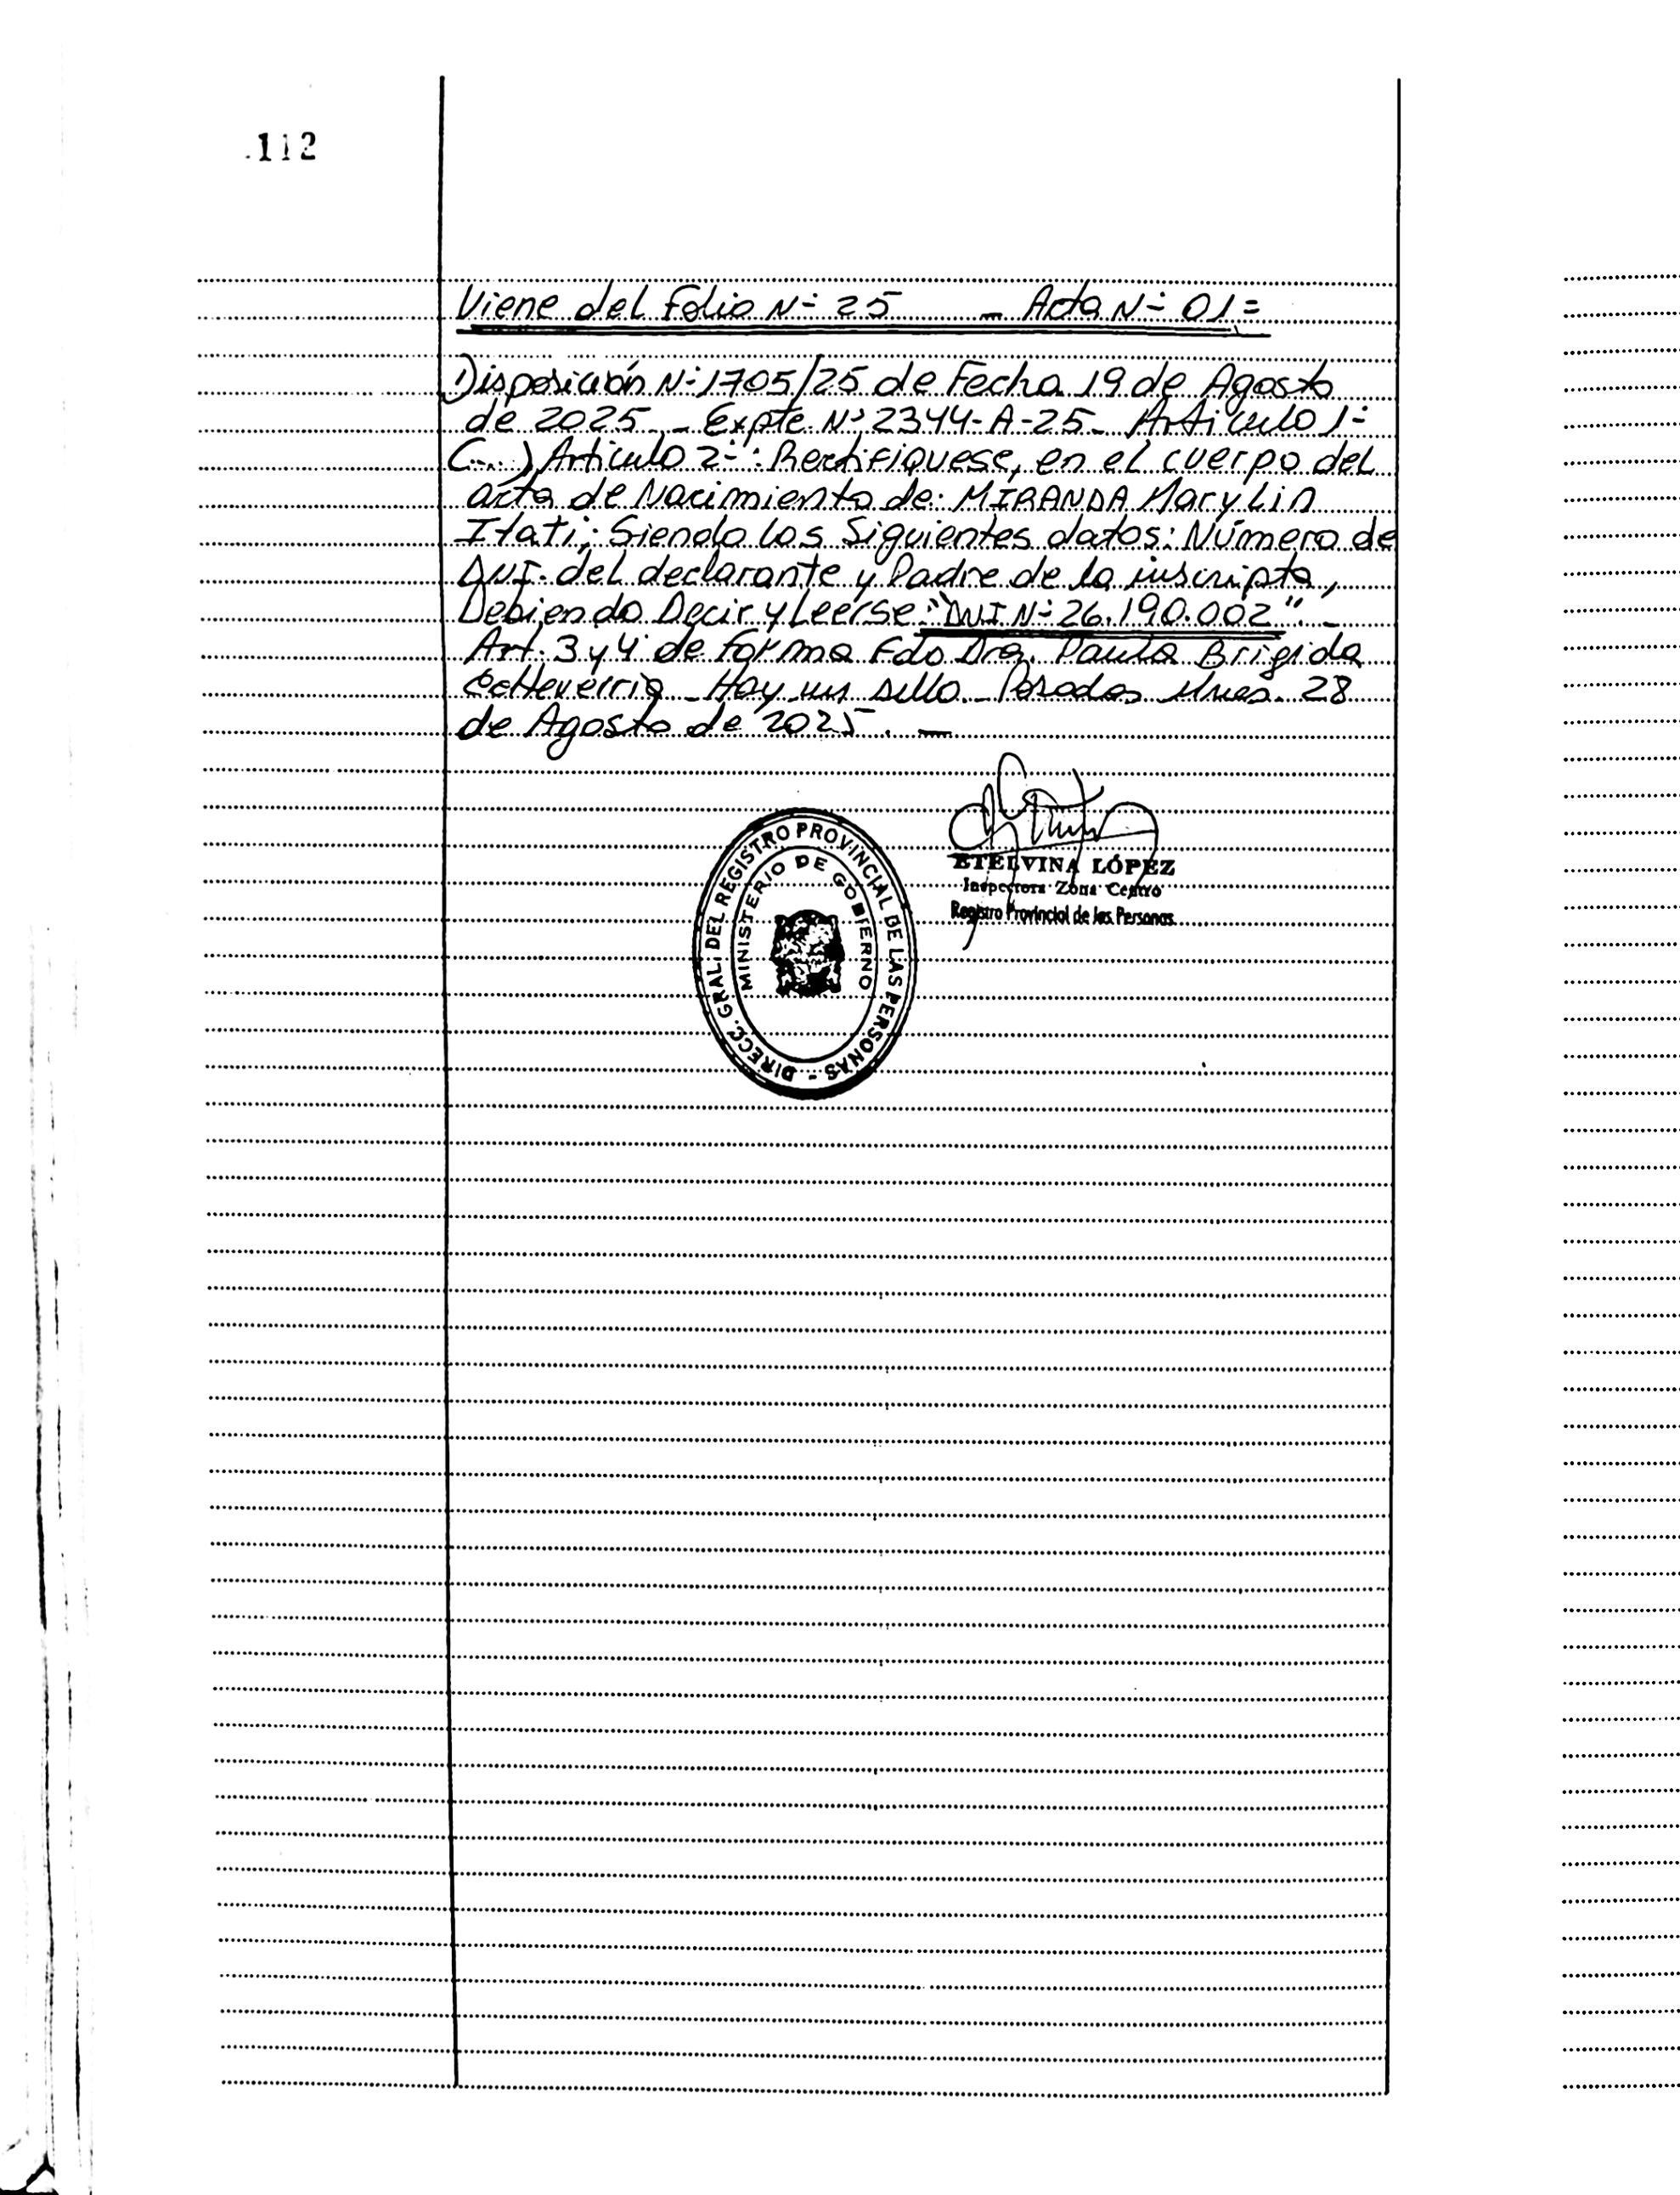 .112
Viene del Folio Nº 25 - Acta Nº 01=
Disposición Nº 1705/25 de Fecha 19 de Agosto
de 2025 - Expte Nº 2344-A-25- Artículo 1º
(...) Artículo 2º: Rectifíquese, en el cuerpo del
acta de Nacimiento de: MIRANDA Mary Lin
Itatí; Siendo los Siguientes datos: Número de
DNI. del declarante y Padre de la inscripta,
Debiendo Decir y Leerse: "DNI Nº 26.190.002". -
Art. 3 y 4 de forma Fdo Dra. Paula Brigida
Echeverria - Hay un sello - Posadas Mnes. 28
de Agosto de 2025. —
ETELVINA LÓPEZ
Inspectora Zona Centro
Registro Provincial de las Personas
DIRECC. GRAL. DEL REGISTRO PROVINCIAL DE LAS PERSONAS -
MINISTERIO DE GOBIERNO